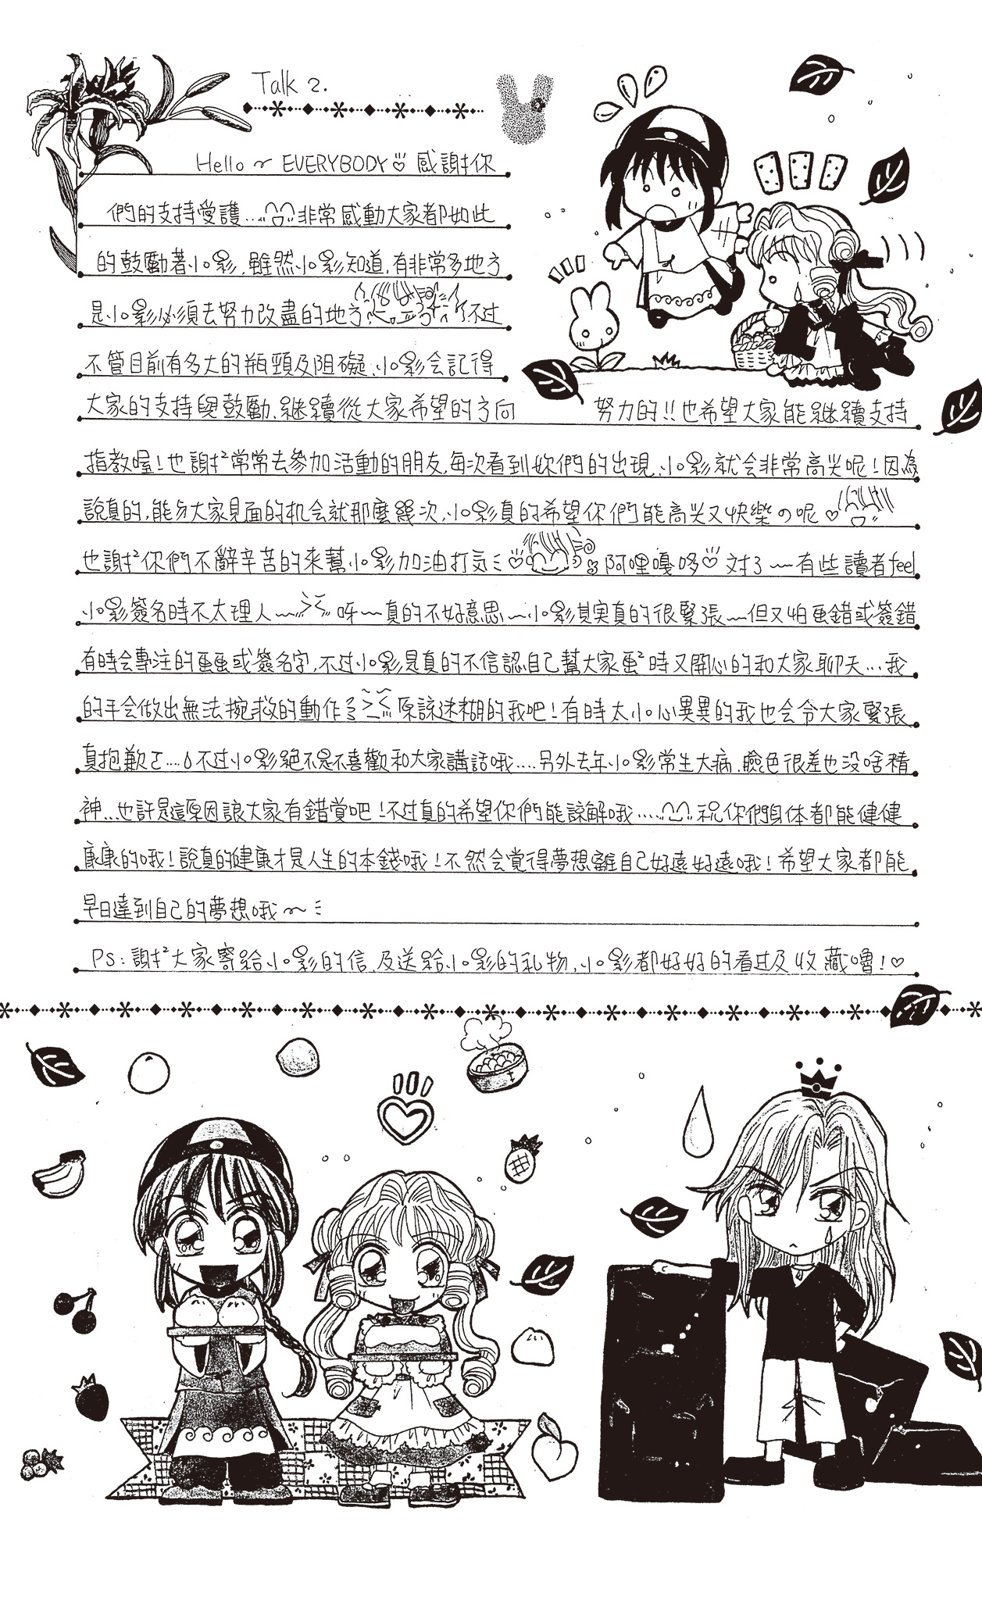 Talk 2.
Hello ~ EVERYBODY♡感謝你
們的支持愛護...非常感動大家都如此
的鼓勵著小影,雖然小影知道,有非常多地方
是小影必須去努力改盡的地方 不过
不管目前有多大的瓶頸及阻礙、小影会記得
大家的支持與鼓勵、継續從大家希望的方向 努力的!!也希望大家能継續支持
指教喔!也謝謝常常去參加活動的朋友,每次看到妳們的出現,小影就会非常高兴呢!因為
說真的,能与大家見面的机会就那麼幾次,小影真的希望你們能高兴又快樂の呢♡
也謝謝你們不辭辛苦的來幫小影加油打気♡ 阿哩嘎哆♡対了~有些讀者feel
小影簽名時不太理人~~呀~真的不好意思~小影其実真的很緊張~但又怕畫錯或簽錯
有時会專注的畫畫或簽名字,不过小影是真的不信認自己幫大家畫畫時又開心的和大家聊天...我
的手会做出無法挽救的動作 原諒迷糊的我吧!有時太小心異異的我也会令大家緊張
真抱歉ㄛ....不过小影絕不是不喜歡和大家講話哦....另外去年小影常生大病、臉色很差也没啥精
神...也許是這原因讓大家有錯覚吧!不过真的希望你們能諒解哦.....祝你們身体都能健健
康康的哦!說真的健康才是人生的本錢哦!不然会覚得夢想離自己好遠好遠哦!希望大家都能
早日達到自己的夢想哦~
PS:謝謝大家寄給小影的信,及送給小影的礼物,小影都好好的看过及收藏嚕!♡